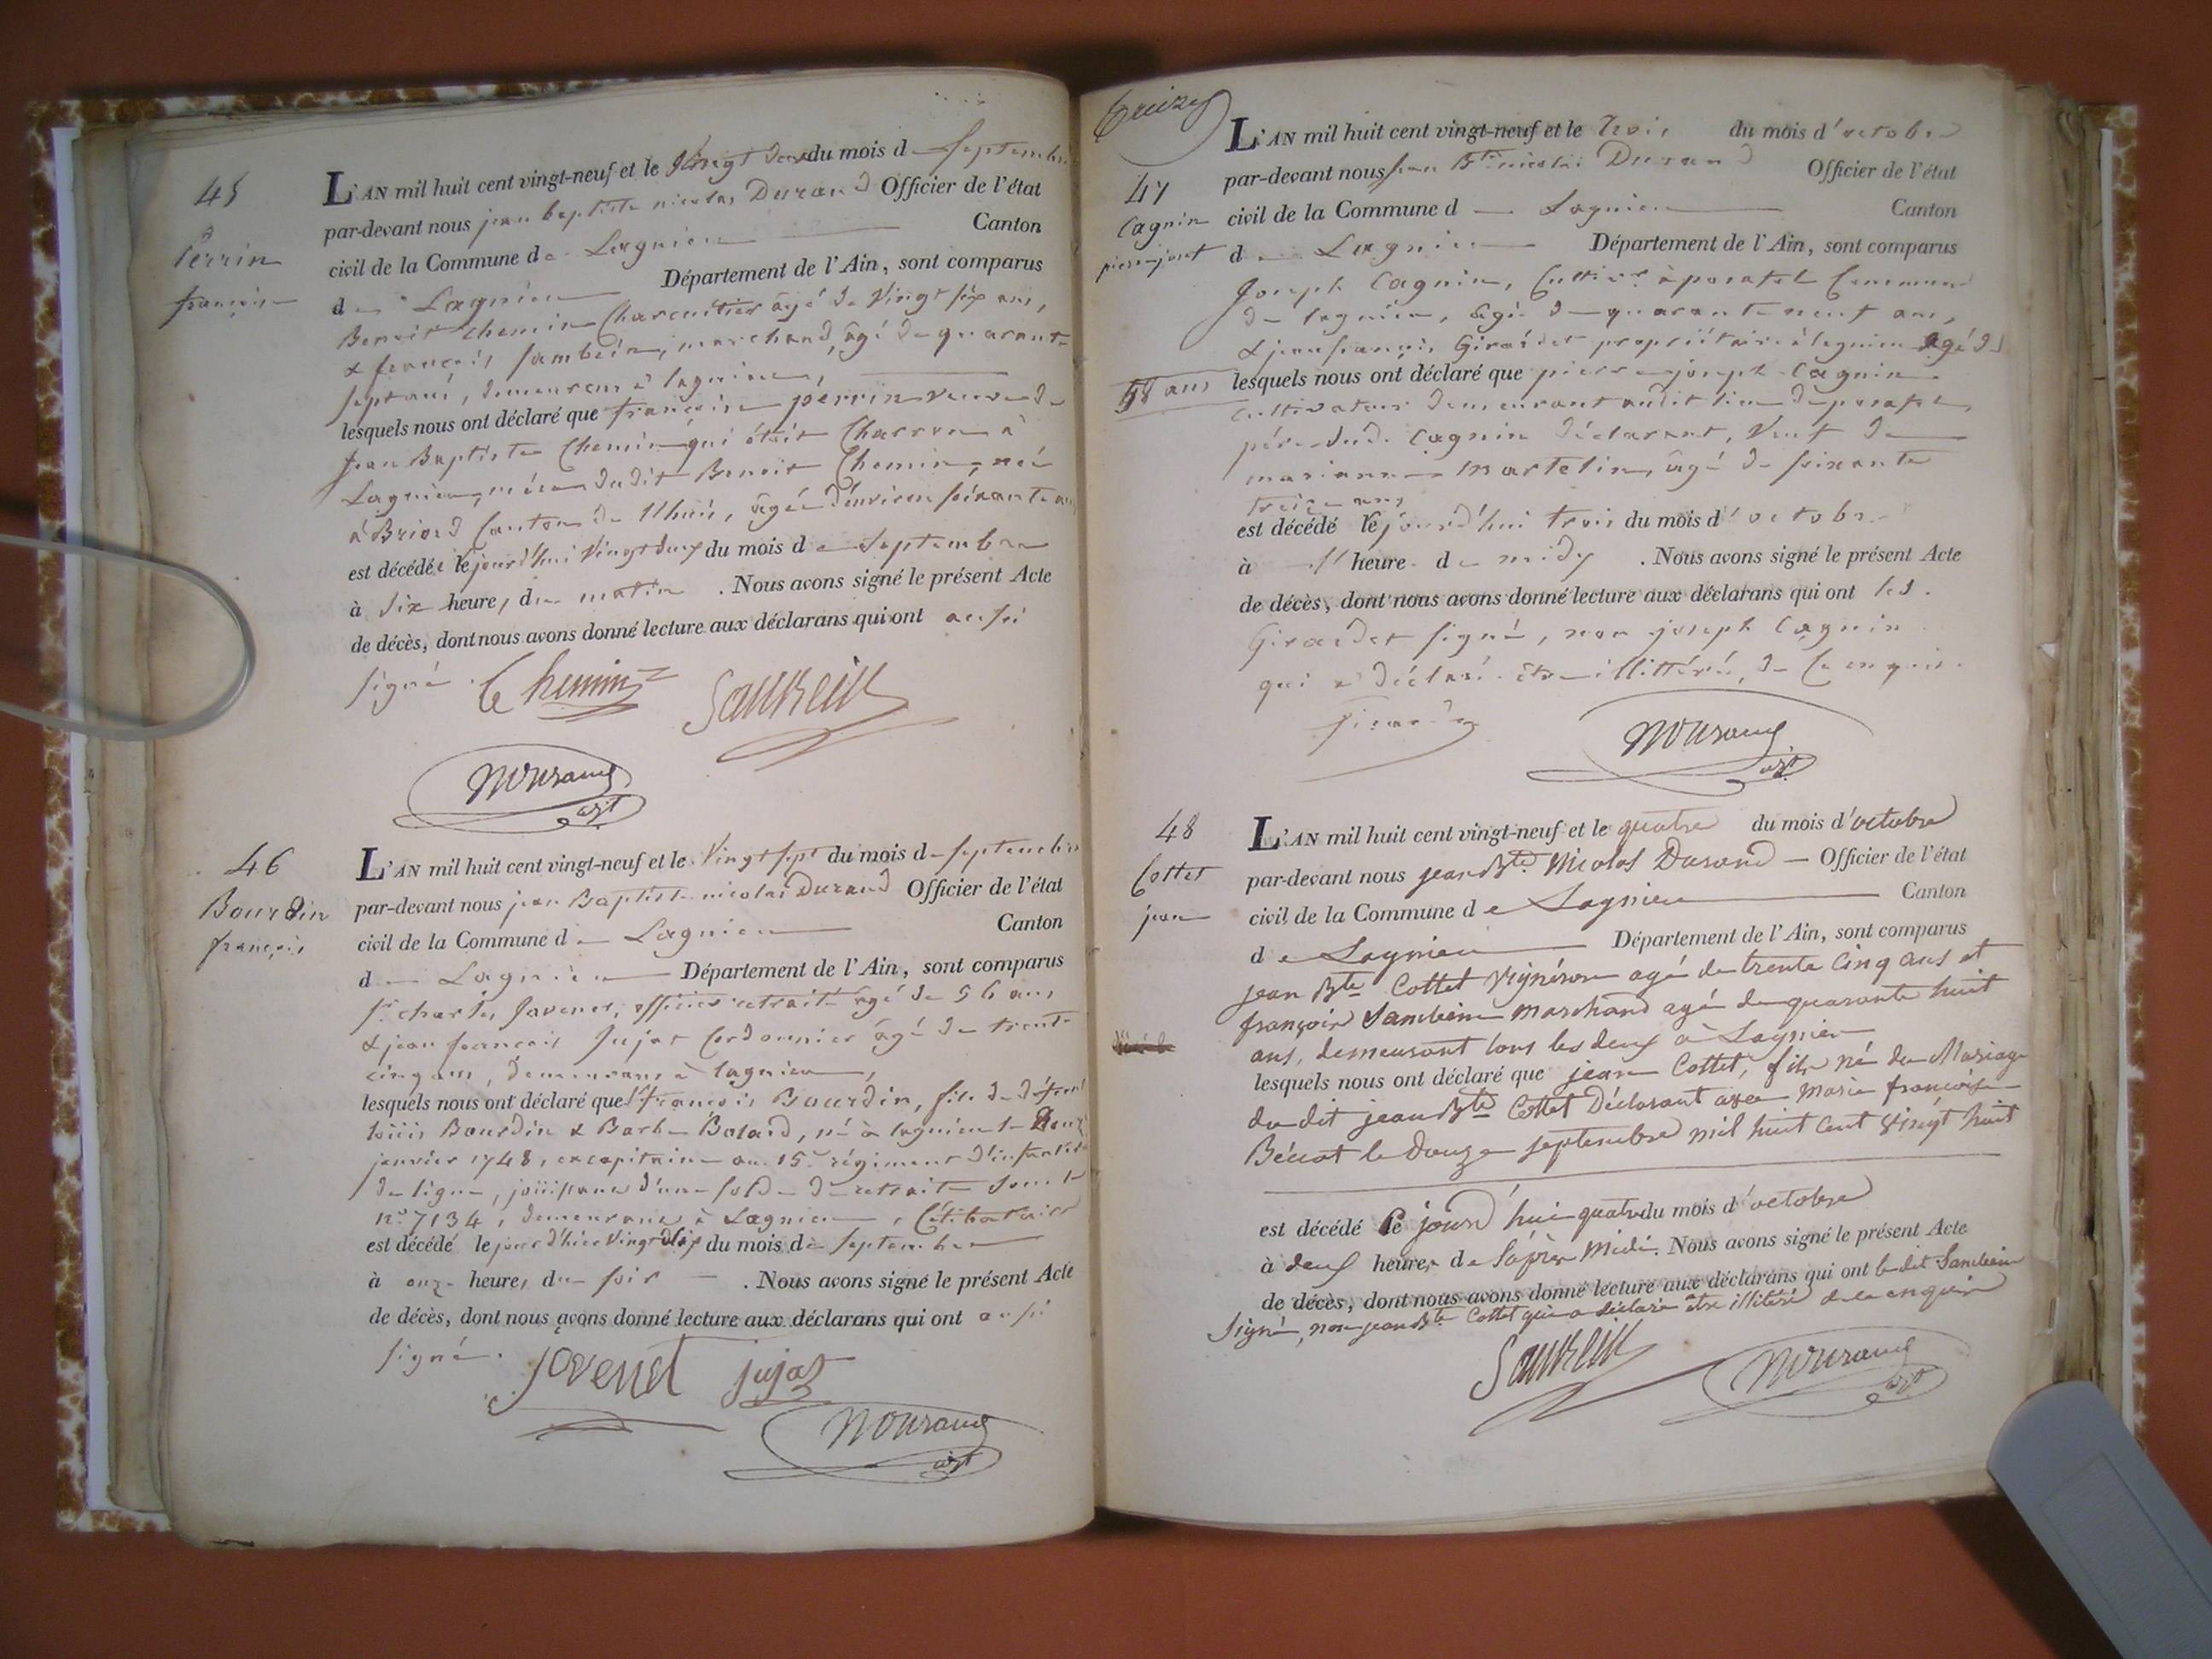 45
Perrin
françoise
L'AN mil huit cent vingt-neuf et le Vingt deux du mois de Septembre
par-devant nous jean baptiste nicolas Durand Officier de l'état
civil de la Commune de Lagnieu Canton
de Lagnieu Département de l'Ain, sont comparus
Benoit Chemin Charcuitier âgé de Vingt six ans,
& françois Sambein, marchand, âgé de quarante
sept ans, demeurans à lagnieu,
lesquels nous ont déclaré que françoise perrin veuve de
Jean Baptiste Chemin qui était Charron à
Lagnieu, mère dudit Benoit Chemin, née
à Briord Canton de l'huis, âgée d'environ soixante ans
est décédée le jourd'hui Vingt deux du mois de Septembre
à dix heures du matin . Nous avons signé le présent Acte
de décès, dont nous avons donné lecture aux déclarans qui ont aussi
signé.
Chemin Sambein
Nourand
46
Bourdin
françois
L'AN mil huit cent vingt-neuf et le Vingt sept du mois de Septembre
par-devant nous jean Baptiste nicolas Durand Officier de l'état
civil de la Commune de Lagnieu Canton
de Lagnieu Département de l'Ain, sont comparus
Sr. charles Javenet, officier retraité âgé de 56 ans
& jean françois Jujat Cordonnier âgé de trente
cinq ans, demeurans à lagnieu,
lesquels nous ont déclaré que Sr françois Bourdin, fils de défunt
louis Bourdin & Barbe Bolard, né à lagnieu le Douze
janvier 1748, excapitaine au 15e régiment d'infanterie
de ligne, jouissant d'une solde de retraite sous le
n.o 7134, demeurant à Lagnieu, Célibataire
est décédé le jour d'hier Vingt six du mois de Septembre
à onze heures du soir . Nous avons signé le présent Acte
de décès, dont nous avons donné lecture aux déclarans qui ont aussi
signé.
Jovenet jujat
Nourand
treize
47
Cagnin
pierre joset
58 ans
L'AN mil huit cent vingt-neuf et le Trois du mois d'octobre
par-devant nous jean Bte nicolas Durand Officier de l'état
civil de la Commune de Lagnieu Canton
de Lagnieu Département de l'Ain, sont comparus
Joseph Cagnin, Cultivr à posafol Commune
de lagnieu, âgé de quarante neuf ans,
& jean françois Girardet propriétaire à lagnieu âgé de
lesquels nous ont déclaré que pierre joseph Cagnin
cultivateur demeurant audit lieu de posafol
père dud. Cagnin déclarant, Veuf de
marianne Martelin, âgé de soixante
treize ans
est décédé le jourd'hui trois du mois d'octobre
à l'heure de midy . Nous avons signé le présent Acte
de décès, dont nous avons donné lecture aux déclarans qui ont led.
Girardet signé, non joseph Cagnin
qui a déclaré être illittéré, de ce enquis.
Nourand
48
Cottet
jean
L'AN mil huit cent vingt-neuf et le quatre du mois d'octobre
par-devant nous jean Bte Nicolas Durand Officier de l'état
civil de la Commune de Lagnieu Canton
de Lagnieu Département de l'Ain, sont comparus
jean Bte Cottet Vigneron agé de trente Cinq ans et
françois Sambein marchand agé de quarante huit
ans, demeurant tous les deux à Lagnieu
lesquels nous ont déclaré que jean Cottet, fils né du Mariage
du dit jean Bte Cottet Déclarant avec marie françoise
Béccat le Douze septembre mil huit Cent Vingt huit
est décédé le jourd'hui quatre du mois d'octobre
à deux heures de l'après Midi. Nous avons signé le présent Acte
de décès, dont nous avons donné lecture aux déclarans qui ont le dit Sambein
Signé, non jean Bte Cottet qui a déclaré être illitéré de ce enquis
Sambein Nourand